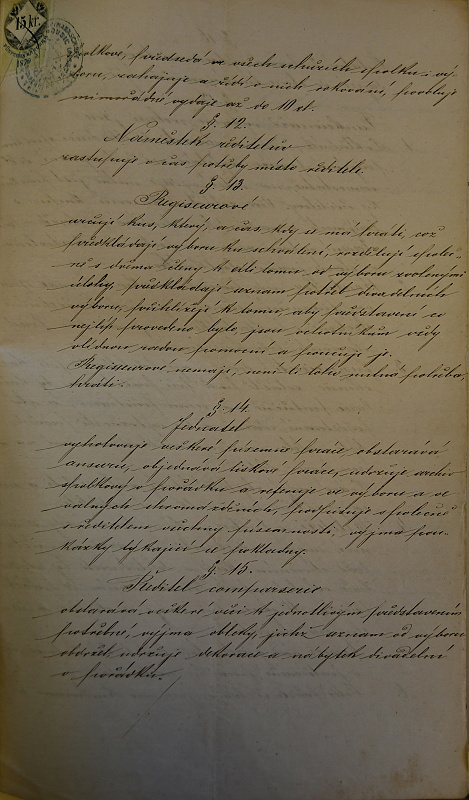 15 kr.
spolkové, předsedá ve všech schůzích spolku i vý-
boru, zahajuje a řídí v nich rokování, povoluje
mimořádné výdaje až do 10 zl.
§. 12.
Náměstek ředitelův
zastupuje v čas potřeby místo ředitele.
§. 13.
Regisseurové
určují kus, který, a čas, kdy se má hráti, což
předkládají výboru ku schválení, rozdělují společ-
ně s dvěma členy k doli tomu od výboru zvolenými
úlohy, předkládají seznam potřeb divadelních
výboru, přihlížejí k tomu, aby představení co
nejlép provedeno bylo, jsou ochotníkům vždy
vlídnou radou pomocni a poučují je.
Regisseurové nemají, není-li toho nutná potřeba,
hráti.
§. 14.
Jednatel
vyhotovuje veškeré písemné práce, obstarává
censuru, objednává tiskové práce, udržuje archiv
spolkový v pořádku a referuje ve výboru a ve
valných shromážděních, podpisuje společně
s ředitelem všechny písemnosti, vyjma pou-
kázky týkající se pokladny.
§. 15.
Ředitel comparserie
obstarává veškeré věci k jednotlivým představením
potřebné, vyjma obleky, jichž seznam od výboru
obdržel, udržuje dekorace a nábytek divadelní
v pořádku.